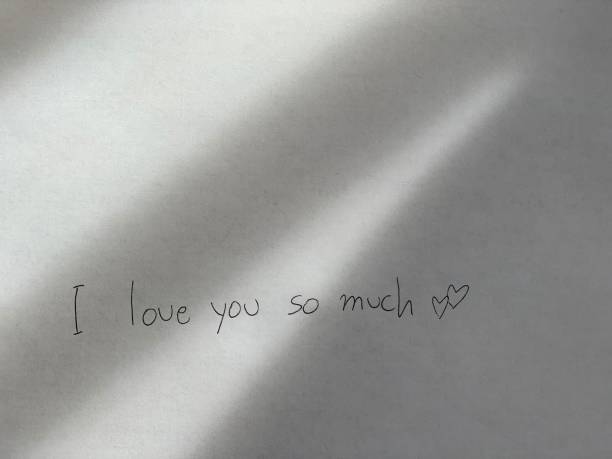 I love you so much ♡♡